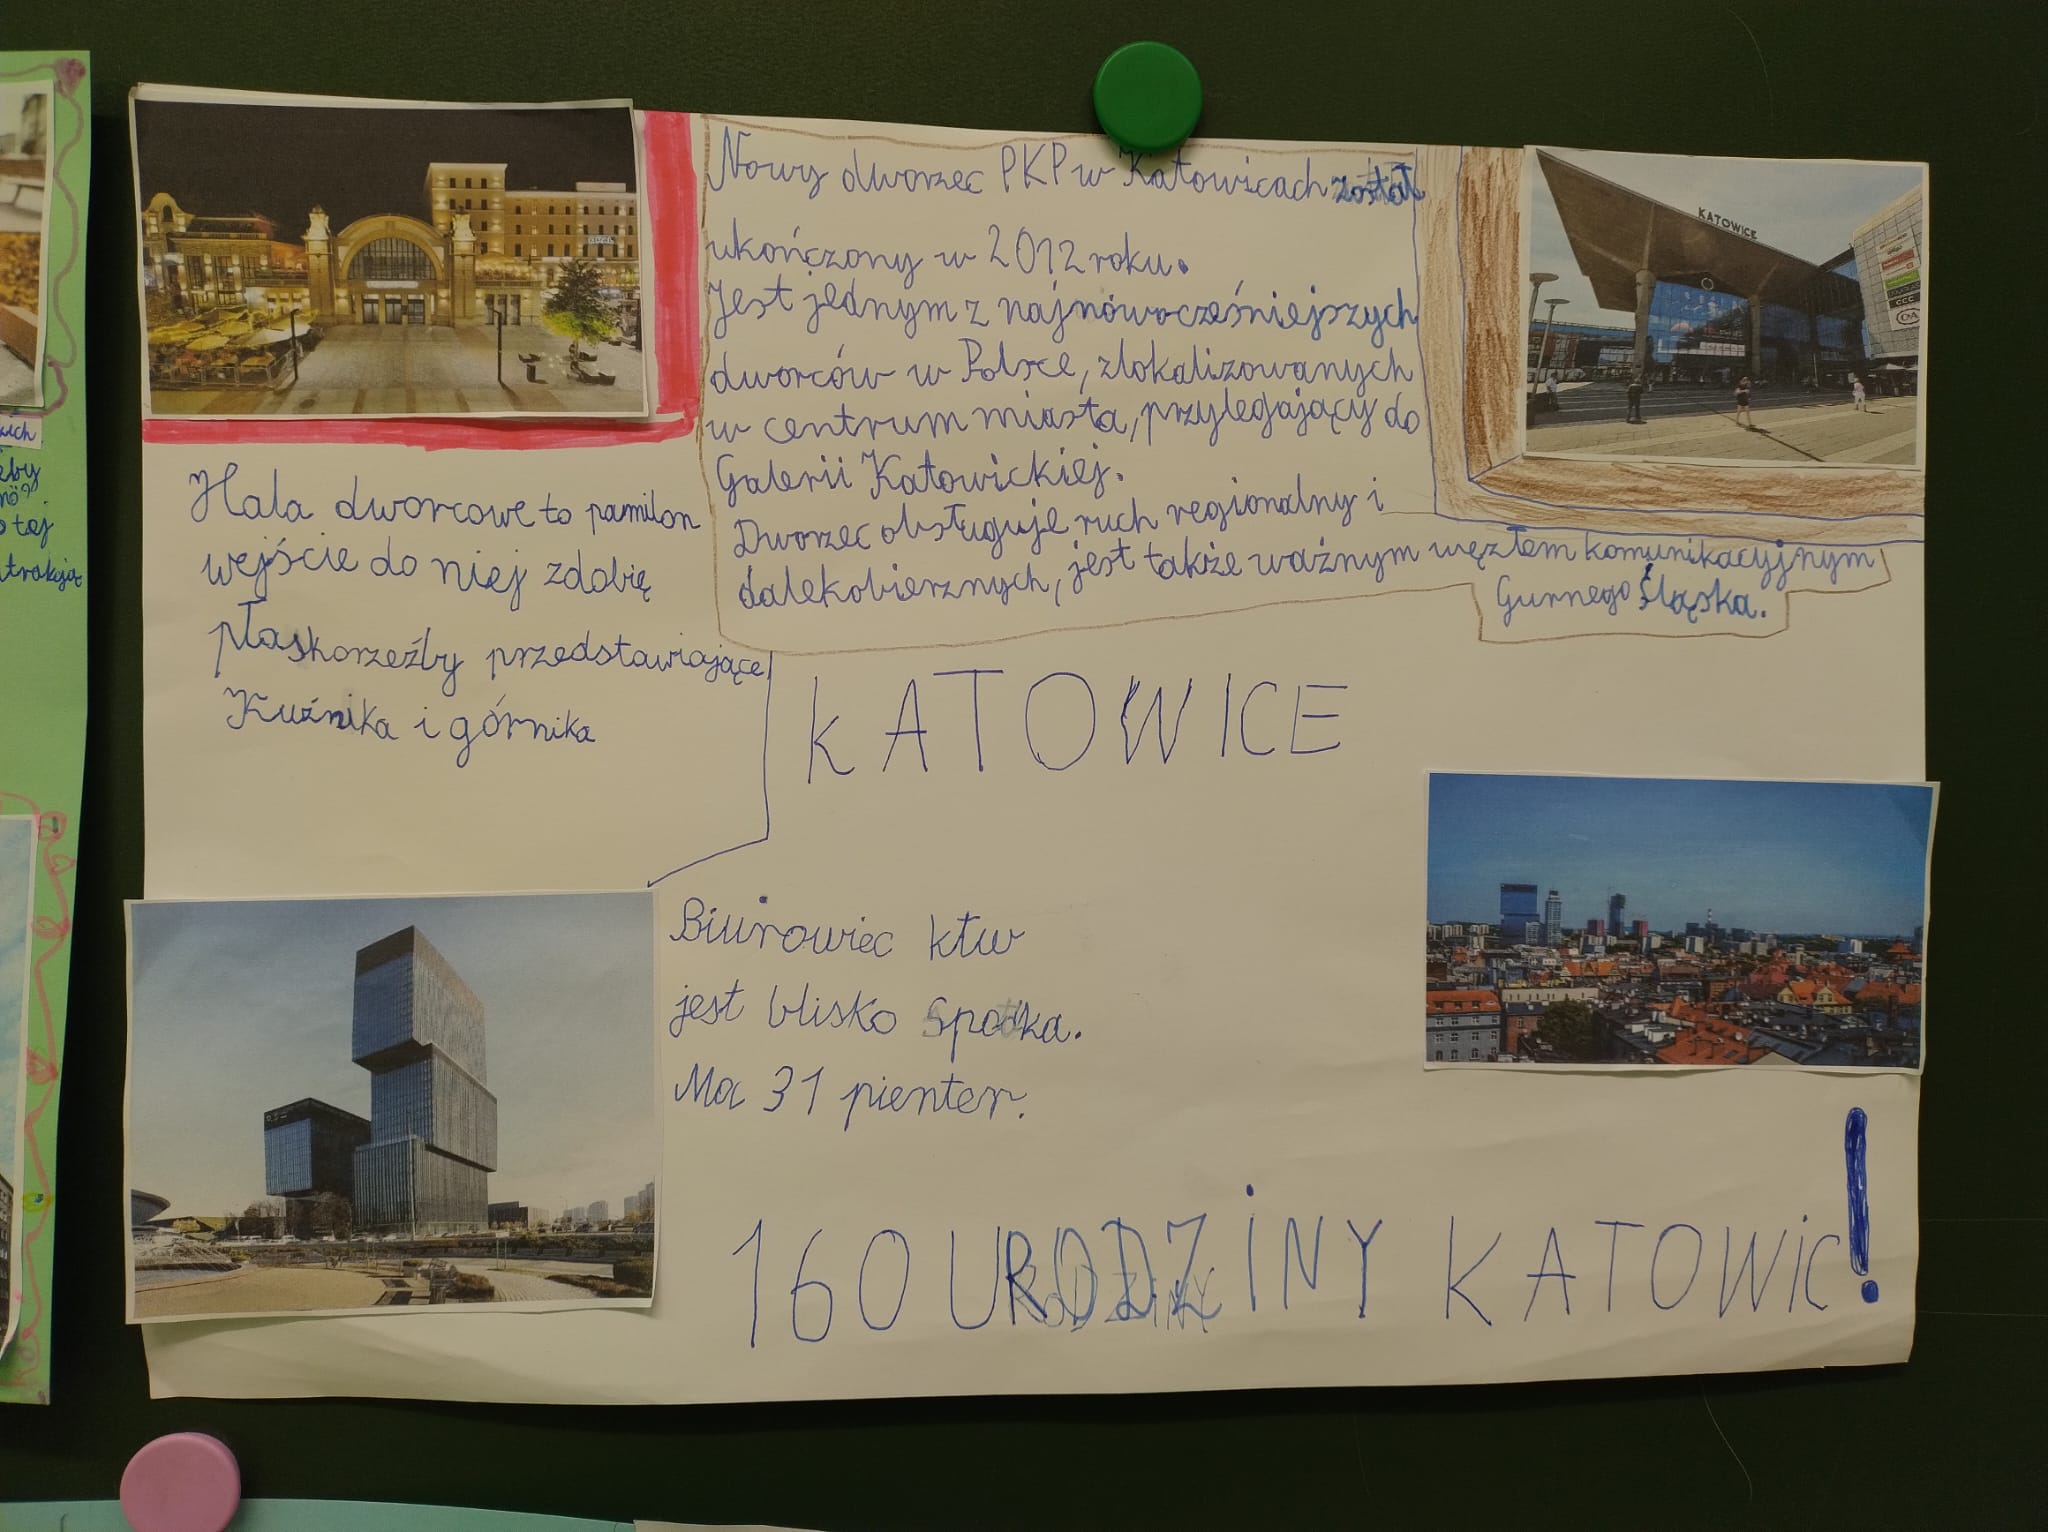 Nowy dworzec PKP w Katowicach został
ukończony w 2012 roku.
Jest jednym z najnowocześniejszych
dworców w Polsce, zlokalizowanych
w centrum miasta, przylegający do
Galerii Katowickiej.
Dworzec obsługuje ruch regionalny i
dalekobierznych, jest także ważnym węzłem komunikacyjnym
Gurnego Śląska.
KATOWICE
CCC
C&A
Hala dworcowe to pamilon
wejście do niej zdobię
płaskorzeźby przedstawiające
Kuźnika i górnika
KATOWICE
Biurowiec ktw
jest blisko Spodka.
Ma 31 pienter.
160 URODZINY KATOWIC!
zich
eby
o tej
trakcją